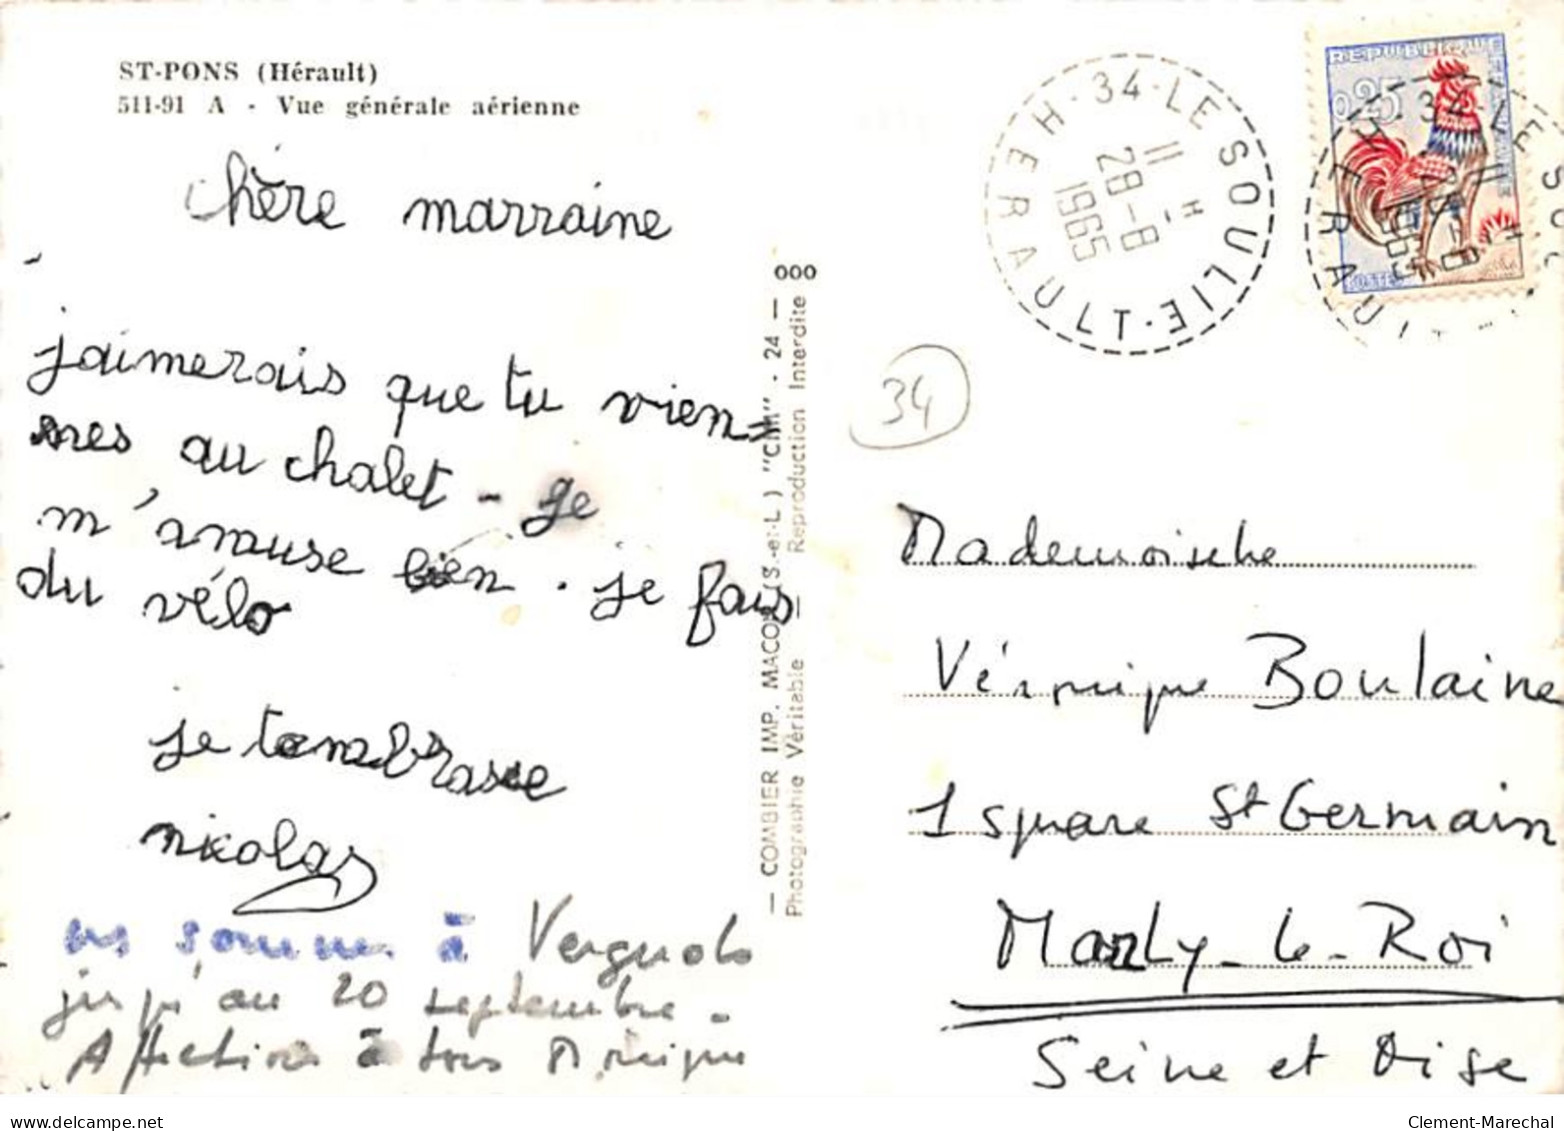 ST-PONS (Hérault)
511-91 A - Vue générale aérienne
chère marraine
j'aimerais que tu vien=
nes au chalet - je
m'amuse bien. je fais
du vélo
je tembrasse
nikolas
ns somm à Vergnols
jusqu'au 20 septembre -
Affection à tous Monique
— COMBIER IMP. MACON (S.-et-L.) "CIM" - 24 — 000
Photographie Véritable — Reproduction Interdite
34 · LE SOULIE · HERAULT
11 H
28-8
1965
REPUBLIQUE FRANCAISE
0,25
POSTES
34 · LE SOU
HERAUL
11 H
1965
34
Mademoiselle
Véronique Boulaine
1 square St Germain
Marly-le-Roi
Seine et Oise
Clement-Marechal